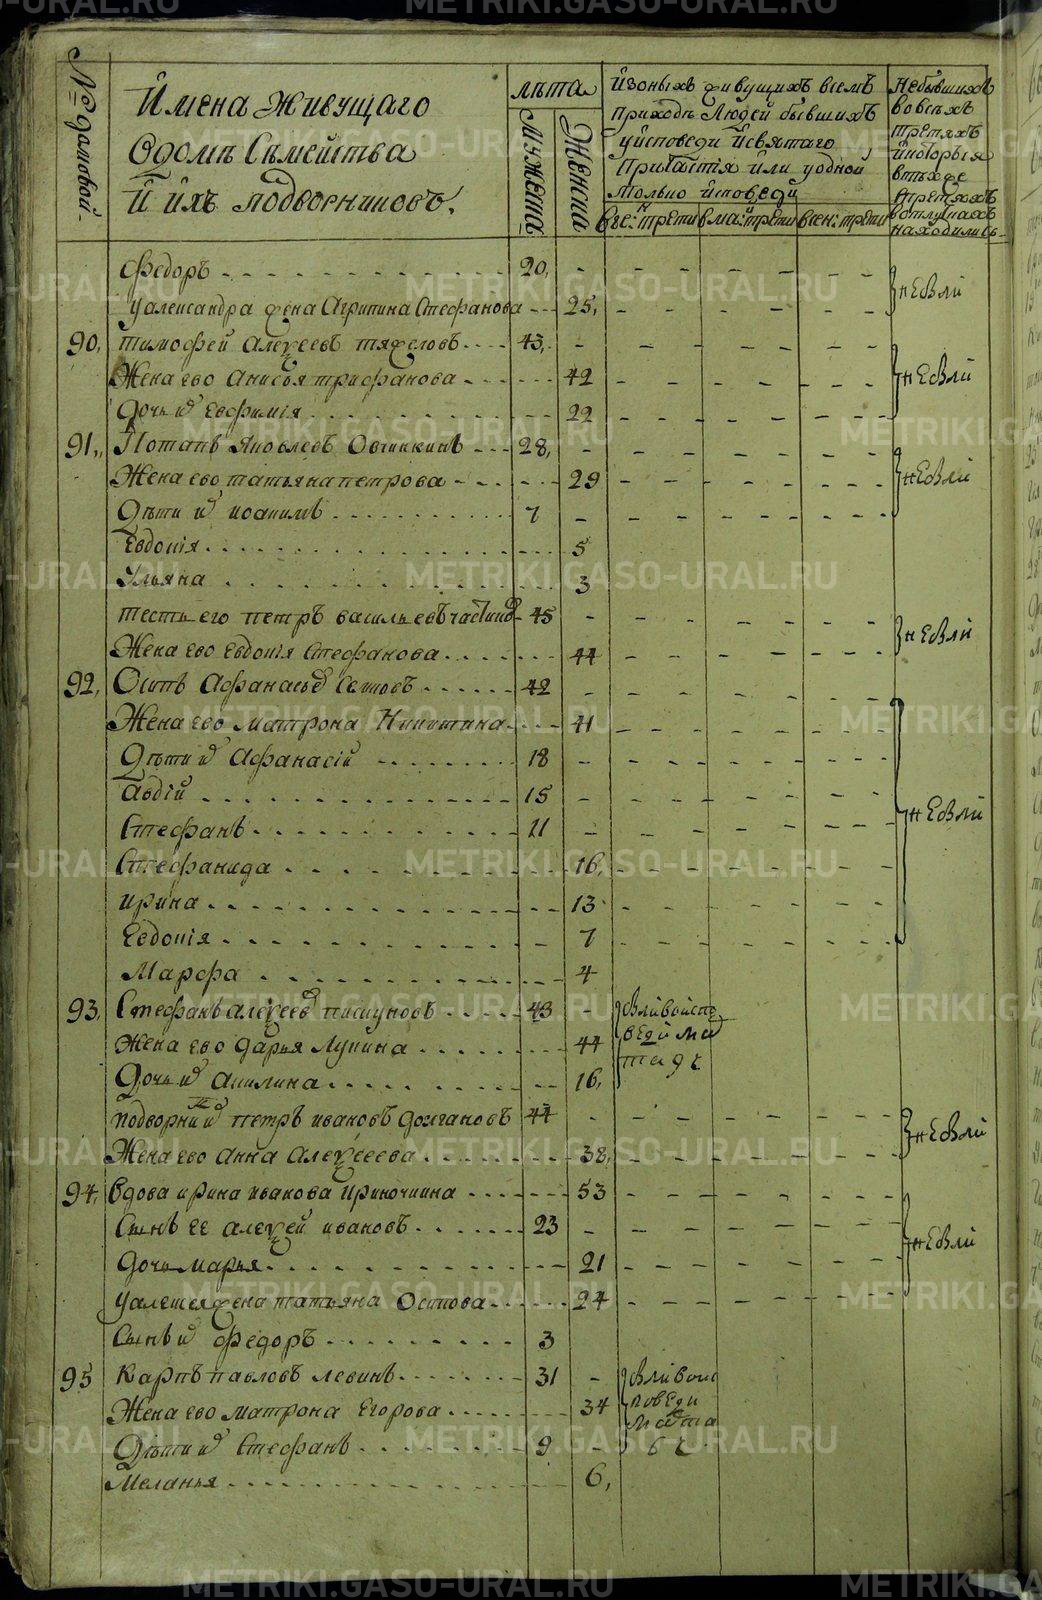 № домовой.
Имена живущаго
Вдомѣ Сѣмейства
Й ихъ подворниковъ.
лѣта
Мужеска
Женска
Изоныхъ живущихъ всемъ
приходѣ Людей бывшихъ
уисповеди исвятаго
Причастія или уодной
только исповеди
вге: трети вмаи: трети всен: трети
Небывшихъ
вовсѣхъ
третяхъ
икоторыя
втѣхже
третяхъ
вотлучкахъ
находились
Федоръ 20,
уалександра жена Агрипина Стефанова 25,
нЕбЫлЙ
90, тимофей алеѯеевъ тяжеловъ 43,
Жена его анисья трифанова 42
нЕбЫлЙ
Дочь и Евфимія 22
91, Потапъ Яковлевъ Овчинкинъ 28,
Жена его татьяна петрова 29
нЕбЫлЙ
Дѣти и иоакимъ 7
Евдокія 5
Ульяна 3
тесть его петръ васильевъ 45
нЕбЫлЙ
Жена его Евдокія Стефанова 44
92, Осипъ Афанасье 42
Жена его матрона Никитина 41
Дѣти и Афанасій 18
авдій 15
Стефанъ 11
нЕбЫлЙ
Стефанида 16,
ирина 13
Евдокія 7
Марфа 4
93, Стефанъ алеѯеев пискуновъ 43
Жена его Дарья Лукина 44
Дочь и акилина 16,
подворни петръ ивановъ долгановъ 44
нЕбЫлЙ
Жена его анна алеѯеева 38,
94, Вдова ирина иванова 53
Сынъ ее алеѯей ивановъ 23
нЕбЫлЙ
Дочь марья 21
жена татьяна Осипова 24
Сынъ и федоръ 3
95 Карпъ павловъ левинъ 31
Жена его матрона Егорова 34
Дѣти и Стефанъ 9
Меланья 6,
METRIKI.GASO-URAL.RU